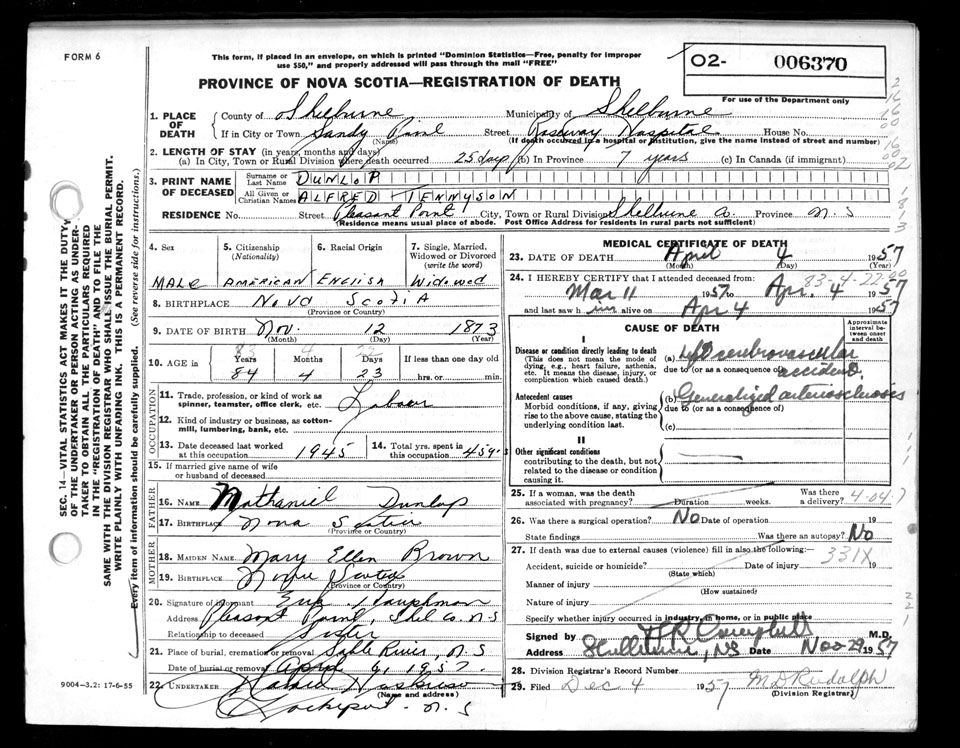 FORM 6
This form, if placed in an envelope, on which is printed "Dominion Statistics—Free, penalty for improper
use $50," and properly addressed will pass through the mail "FREE"
PROVINCE OF NOVA SCOTIA—REGISTRATION OF DEATH
02- 006370
For use of the Department only
1. PLACE OF DEATH
County of Shelburne Municipality of Shelburne
If in City or Town Sandy Point Street Roseway Hospital House No.
(Name) (If death occurred in a hospital or institution, give the name instead of street and number)
2. LENGTH OF STAY (in years, months and days)
(a) In City, Town or Rural Division where death occurred 25 days (b) In Province 7 years (c) In Canada (if immigrant)
3. PRINT NAME OF DECEASED
Surname or Last Name DUNLOP
All Given or Christian Names ALFRED TENNYSON
RESIDENCE No. Street Pleasant Point City, Town or Rural Division Shelburne Co. Province N.S
(Residence means usual place of abode. Post Office Address for residents in rural parts not sufficient)
4. Sex
MALE
5. Citizenship (Nationality)
AMERICAN
6. Racial Origin
ENGLISH
7. Single, Married, Widowed or Divorced (write the word)
Widowed
8. BIRTHPLACE NOVA SCOTIA
(Province or Country)
9. DATE OF BIRTH Nov. 12 1873
(Month) (Day) (Year)
10. AGE in Years Months Days If less than one day old
83 4 22
84 4 23 hrs. or min.
OCCUPATION
11. Trade, profession, or kind of work as spinner, teamster, office clerk, etc. Labour
12. Kind of industry or business, as cotton-mill, lumbering, bank, etc.
13. Date deceased last worked at this occupation 1945
14. Total yrs. spent in this occupation 45
15. If married give name of wife or husband of deceased
FATHER
16. NAME Nathaniel Dunlop
17. BIRTHPLACE Nova Scotia
(Province or Country)
MOTHER
18. MAIDEN NAME Mary Ellen Brown
19. BIRTHPLACE Nova Scotia
(Province or Country)
20. Signature of informant
Address Pleasant Point, Shel Co. N-S
Relationship to deceased Sister
21. Place of burial, cremation or removal Sable River, N.S
Date of burial or removal April 6, 1957.
22. UNDERTAKER
(Name and address)
Lockeport - N.S
9004-3.2: 17-6-55
MEDICAL CERTIFICATE OF DEATH
23. DATE OF DEATH April 4 1957
(Month) (Day) (Year)
83-4-22
24. I HEREBY CERTIFY that I attended deceased from:
Mar 11 1957 to Apr. 4 1957
and last saw him alive on Apr 4 1957
CAUSE OF DEATH
Approximate interval between onset and death
I
Disease or condition directly leading to death
(This does not mean the mode of dying, e.g., heart failure, asthenia, etc. It means the disease, injury, or complication which caused death.)
(a) Left cerebrovascular
due to (or as a consequence of) accident.
Antecedent causes
Morbid conditions, if any, giving rise to the above cause, stating the underlying condition last.
(b) Generalized arteriosclerosis
due to (or as a consequence of)
(c)
II
Other significant conditions
contributing to the death, but not related to the disease or condition causing it.
25. If a woman, was the death associated with pregnancy? Duration weeks. Was there a delivery?
26. Was there a surgical operation? No Date of operation 19
State findings Was there an autopsy? No
27. If death was due to external causes (violence) fill in also the following:—
331X
Accident, suicide or homicide? Date of injury 19
(State which)
Manner of injury
(How sustained)
Nature of injury
Specify whether injury occurred in industry, in home, or in public place
Signed by H R Campbell M.D.
Address Shelburne, NS Date Nov-29 1957
28. Division Registrar's Record Number
29. Filed Dec 4 1957 M D Rudolph
(Division Registrar)
SEC. 14—VITAL STATISTICS ACT MAKES IT THE DUTY
OF THE UNDERTAKER OR PERSON ACTING AS UNDER-
TAKER TO OBTAIN ALL THE PARTICULARS REQUIRED
IN THE "REGISTRATION OF DEATH" AND TO FILE THE
SAME WITH THE DIVISION REGISTRAR WHO SHALL ISSUE THE BURIAL PERMIT.
WRITE PLAINLY WITH UNFADING INK. THIS IS A PERMANENT RECORD.
Every item of information should be carefully supplied. (See reverse side for instructions.)